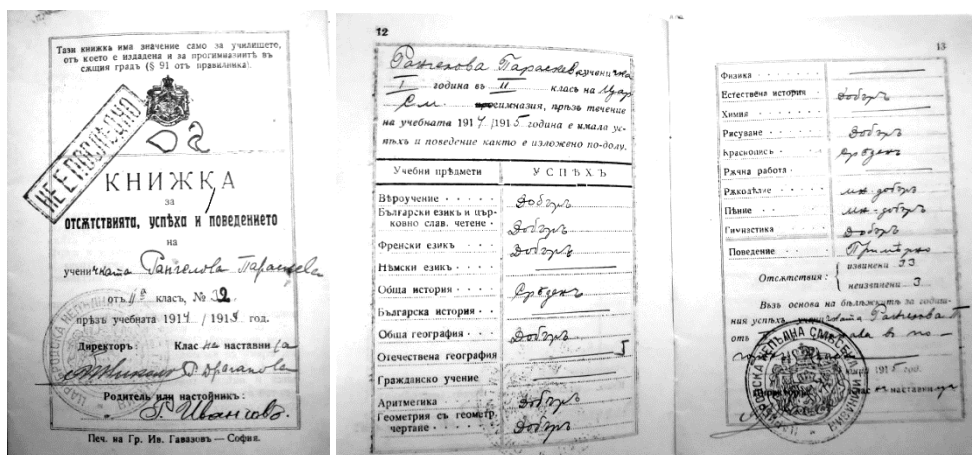 Тази книжка има значение само за училището,
отъ което е издадена и за прогимназиитѣ въ
сѫщия градъ (§ 91 отъ правилника).
НЕ Е ПОВѢРЕНО
КНИЖКА
за
отсѫтствията, успѣха и поведението
на
ученичката Рангелова Параскева
отъ II класъ, № 32
прѣзъ учебната 1914 / 1915 год.
Директоръ: Клас наставни
Г. Драганова
Родитель или настойникъ:
Г. Ивансовъ.
Печ. на Гр. Ив. Гавазовъ — София.
12
Рангелова Параскева ученичка
I година въ II класъ на Цар
См. гимназия, прѣзъ течение
на учебната 1914/1915 година е имала ус-
пѣхъ и поведение както е изложено по-долу.
Учебни прѣдмети УСПѢХЪ
Вѣроучение Добъръ
Български езикъ и цър-
ковно слав. четене Добъръ
Френски езикъ Добъръ
Нѣмски езикъ
Обща история Срѣденъ
Българска история
Обща география Добъръ
Отечествена география
Гражданско учение
Аритметика Добъръ
Геометрия съ геометр.
чертане Добъръ
13
Физика
Естествена история Добъръ
Химия
Рисуване Добъръ
Краснопись Срѣденъ
Рѫчна работа
Рѫкодѣлие мн. добъръ
Пѣние мн. добъръ
Гимнастика Добъръ
Поведение Примѣрно
Отсѫтствия: извинени 33
неизвинени 3
Възъ основа на бѣлѣжкитѣ за годиш-
ния успѣхъ ученичката Рангелова П
отъ в по-
1915 год.
наставни